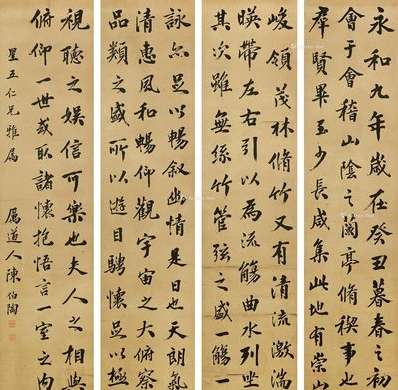 永和九年歲在癸丑暮春之初
會于會稽山陰之蘭亭脩禊事也
羣賢畢至少長咸集此地有崇
峻領茂林脩竹又有清流激湍
暎帶左右引以為流觴曲水列坐
其次雖無絲竹管弦之盛一觴一
詠亦足以暢敘幽情是日也天朗氣
清惠風和暢仰觀宇宙之大俯察
品類之盛所以遊目騁懷足以極
視聽之娛信可樂也夫人之相與
俯仰一世或取諸懷抱悟言一室之內
星五仁兄雅屬
厲道人陳伯陶